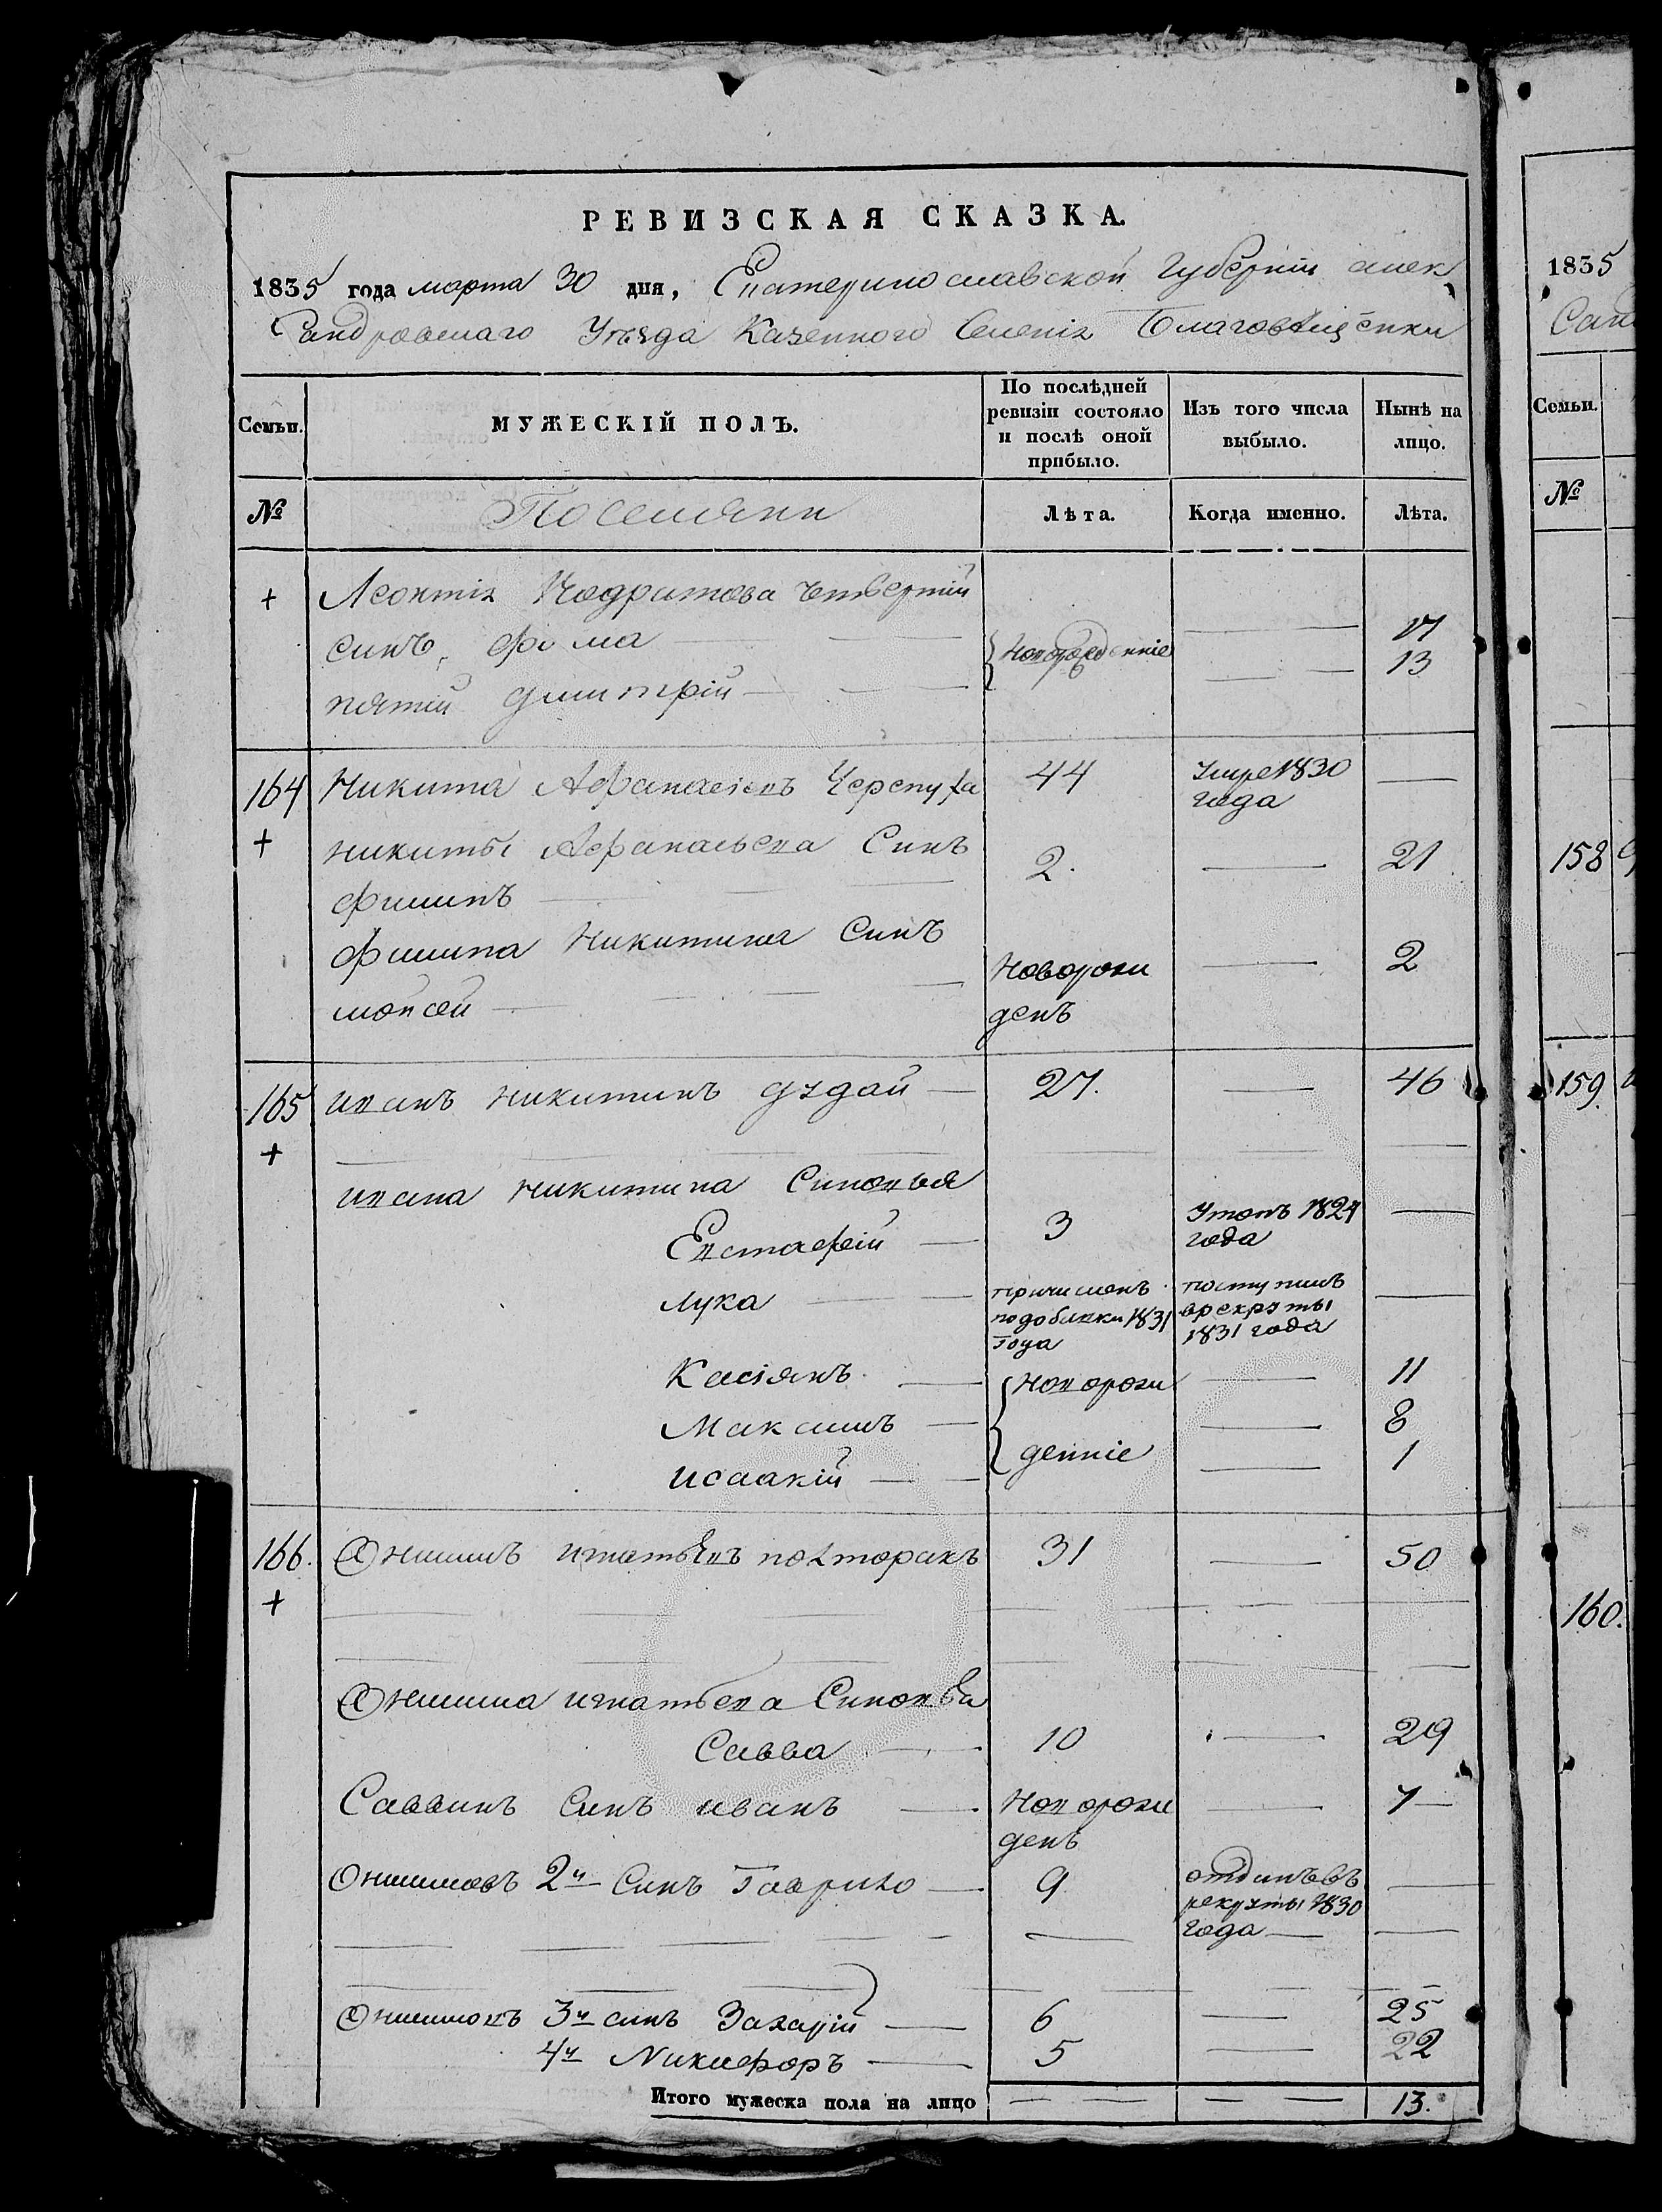 РЕВИЗСКАЯ СКАЗКА.
1835 года марта 30 дня, Екатеринославской Губерніи алек
сандровскаго Уѣзда Казенного Селенія Благовѣщенки
Семьи.
МУЖЕСКІЙ ПОЛЪ.
По послѣдней ревизіи состояло и послѣ оной прибыло.
Изъ того числа выбыло.
Нынѣ на лицо.
№
Поселяни
Лѣта.
Когда именно.
Лѣта.
+ Леонтія Кодратова четвертій
синъ, фома — — 17
{ новорожденніе
пятий димитрій — — — 13
164 Никита Афанасіевъ Черепуха 44 Умре 1830 года —
+ никиты Афанасьева Синъ
филипъ — 2. — 21
филипа Никитина Синъ
мойсей — Новорож денъ — 2
165 иванъ никитинъ дудай — 27. — 46
+
ивана никитина Синовья
Евстафій — 3 Утопъ 1824 года —
лука — причисленъ 1831 года поступилъ врекруты 1831 года —
Касіянъ — { новорож — 11
Максимъ — — 8
исаакій — денніе — 1
166. Онисимъ игнатьевъ полторакъ 31 — 50
+
Онисима игнатьева Синовья
Савва — 10 — 29
Саввинъ Синъ иванъ — Новорож денъ — 7 —
Онисимовъ 2й Синъ Гаврило — 9 отданъ въ рекруты 1830 года —
Онисимовъ 3й синъ Захарій — 6 — 25
4й Никифоръ — 5 — 22
Итого мужеска пола на лицо — — — — 13.
1835
Санд
Семьи.
№
158
159.
160.